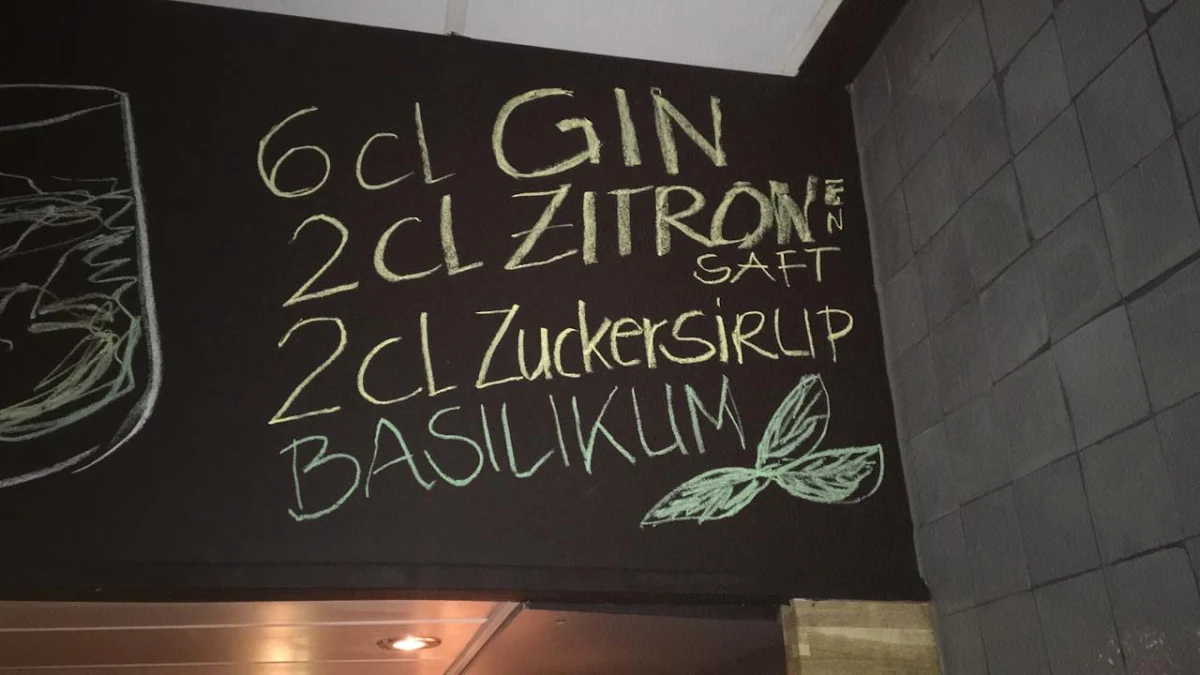 6 cl GIN
2 cL ZITRONEN
SAFT
2 cl ZuckersiRUP
BASILIKUM